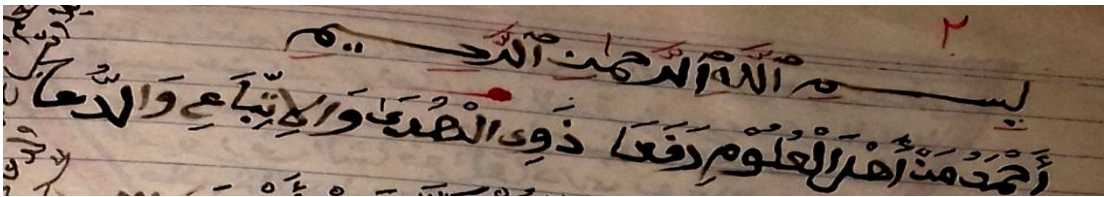 ٢
بِسْمِ ٱللَّهِ ٱلرَّحْمَٰنِ ٱلرَّحِيمِ
أَحْمَدُ مَنْ أَهْلَ الْعُلُومِ رَفَعَا ذَوِى الْهُدَىٰ وَالِاتِّبَاعِ وَالدُّعَا